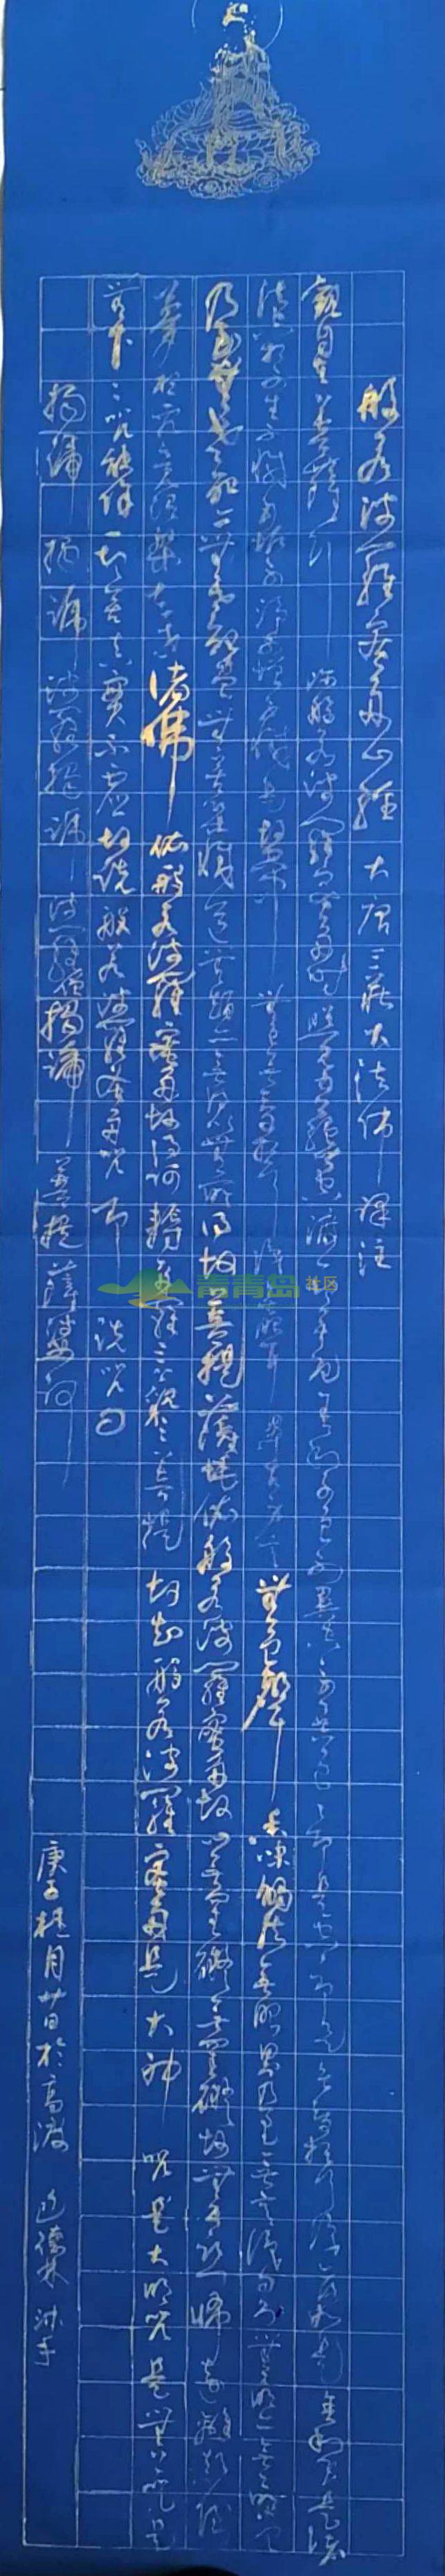 般若波羅蜜多心經 大唐三藏大法師譯注
觀自在菩薩行 深般若波羅蜜多時照見五蘊皆空度一切苦厄 舍利子色不異空空不異色色即是空空即是色受想行識亦復如是 舍利子是諸
法空相不生不滅不垢不淨不增不減是故空中 無色無受想行識無眼耳鼻舌身意 無色聲 香味觸法無眼界乃至無意識界無無明亦無無明盡
乃至無老死亦無老死盡無苦集滅道無智亦無得以無所得故菩提薩埵依般若波羅蜜多故心無罣礙無罣礙故無有恐怖遠離顛倒
夢想究竟涅槃三世諸佛 依般若波羅蜜多故得阿耨多羅三藐三菩提 故知般若波羅蜜多是大神 咒是大明咒是無上咒是
無等等咒能除一切苦真實不虛故說般若波羅蜜多咒即 說咒曰
揭諦 揭諦 波羅揭諦 波羅僧揭諦 菩提薩婆訶
庚子桂月廿日於高密 德林 沐手
青青岛社区